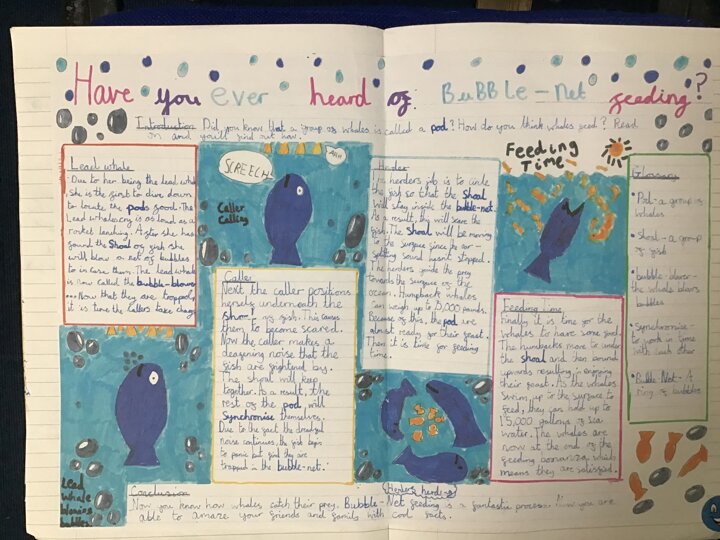 Have you ever heard of BuBBLe-net feeding?
Introduction Did you know that a group of whales is called a pod? How do you think whales feed? Read
on and you'll find out how.
Lead whale
Due to her being the lead whale
She is the first to dive down
to locate the pods food. The
Lead whale cry is as loud as a
rocket landing. After she has
found the Shoal of fish she
will blow a net of bubbles
to in case them. The lead whale
is now called the bubble-blower
...Now that they are trapped,
it is time the Callers take charge
SCREECH!
Ahh
Caller
Calling
Caller
Next the caller positions
herself underneath the
shoal of fish. This causes
them to become scared.
Now the caller makes a
deafening noise that the
fish are frightened by.
The shoal will keep
together. As a result, the
rest of the pod will
synchronise themselves.
Due to the fact the dreadful
noise continues, the fish begin
to panic but find they are
trapped in the bubble-net.
Lead
Whale
blowing
bubbles
Herder
The herders job is to circle
the fish so that the Shoal
will stay inside the bubble-net.
As a result, they will scare the
fish. The Shoal will be moving
to the surface since the ear-
splitting sound hasn't stopped.
The herders guide the prey
towards the surface of the
ocean. Humpback whales
can weigh up to 75,000 pounds.
Because of this, the pod are
almost ready for their feast.
Then it is time for feeding
time.
Herders herding
Feeding
Time
Feeding Time
Finally it is time for the
whales to have some food.
The humpbacks move to under
the shoal and then pound
upwards resulting in enjoying
their feast. As the whales
swim up to the surface to
feed, they can hold up to
15,000 gallons of sea
water. The whales are
now at the end of the
feeding bonanza which
means they are satisfied.
Glossary
• Pod - a group of
whales
• Shoal - a group
of fish
• bubble-blower -
the whale blows
bubbles
• Synchronise -
to work in time
with each other
• Bubble Net - A
ring of bubbles
Conclusion
Now you know how whales catch their prey. Bubble-Net feeding is a fantastic process. Now you are
able to amaze your friends and family with cool facts.